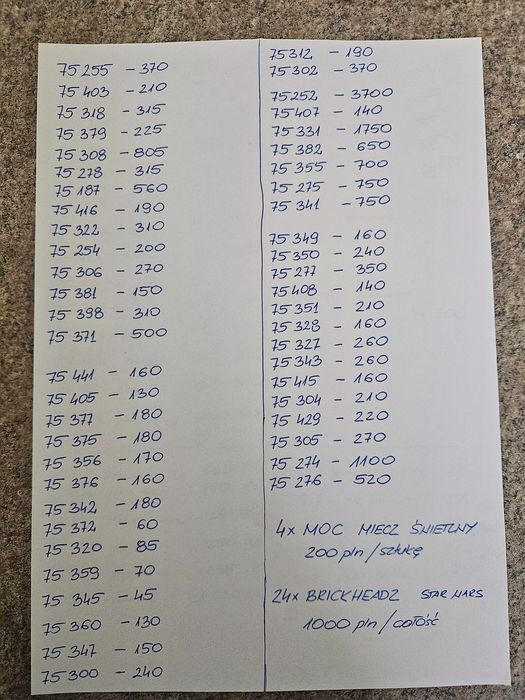 75 255 - 370
75 403 - 210
75 318 - 315
75 379 - 225
75 308 - 805
75 278 - 315
75 187 - 560
75 416 - 190
75 322 - 310
75 254 - 200
75 306 - 270
75 381 - 150
75 398 - 310
75 371 - 500
75 441 - 160
75 405 - 130
75 377 - 180
75 375 - 180
75 356 - 170
75 376 - 160
75 342 - 180
75 372 - 60
75 320 - 85
75 359 - 70
75 345 - 45
75 360 - 130
75 347 - 150
75 300 - 240
75 312 - 190
75 302 - 370
75 252 - 3700
75 407 - 140
75 331 - 1750
75 382 - 650
75 355 - 700
75 275 - 750
75 341 - 750
75 349 - 160
75 350 - 240
75 277 - 350
75 408 - 140
75 351 - 210
75 328 - 160
75 327 - 260
75 343 - 260
75 415 - 160
75 304 - 210
75 429 - 220
75 305 - 270
75 274 - 1100
75 276 - 520
4x MOC MIECZ ŚWIETLNY
200 pln / sztukę
24x BRICKHEADZ STAR WARS
1000 pln / całość